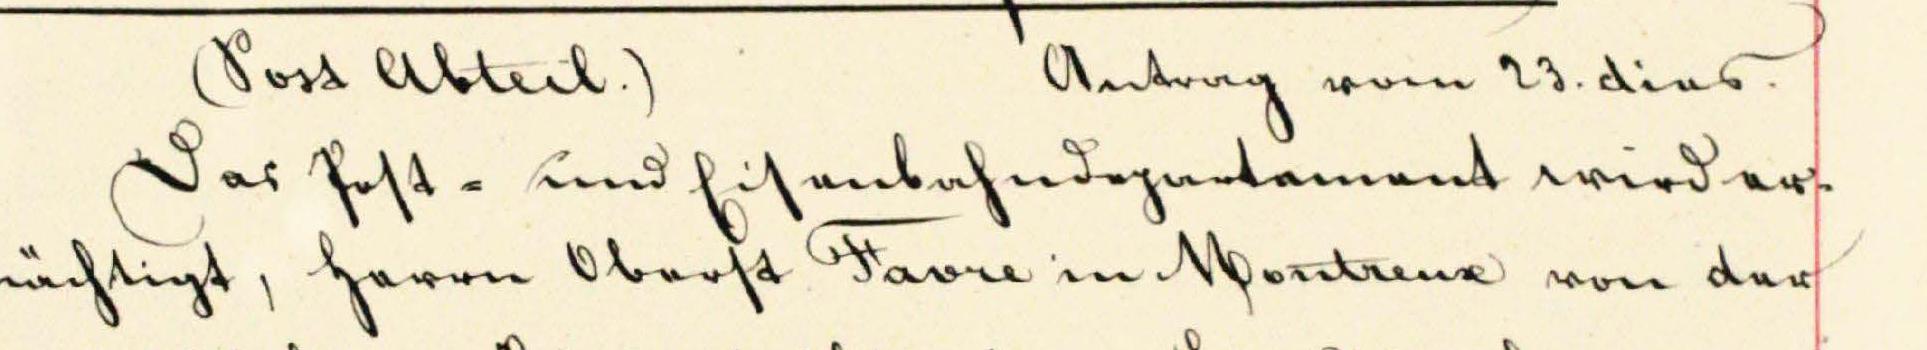 (Post Abteil.) Antrag vom 23. dies.
Das Post- und Eisenbahndepartement wird er-
mächtigt, Herrn Oberst Favre in Montreux von der